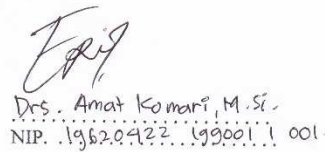 Drs. Amat Komari, M.Si.
NIP. 19620422 199001 1 001.